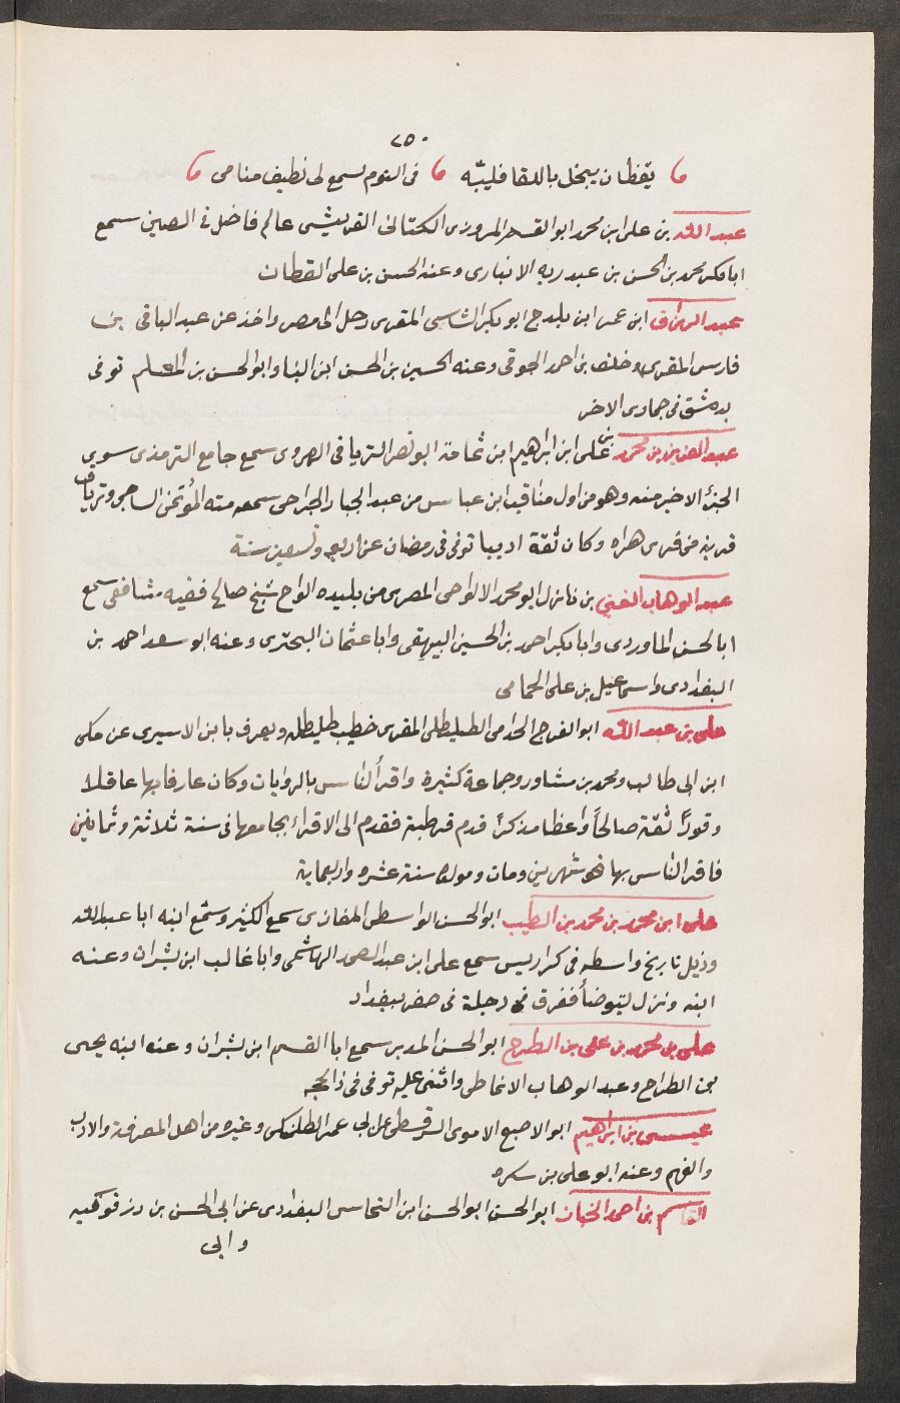 ٢٥٠
يقظان يبخل باللقا فليته فى النوم يسمع لى بطيف منامى
عبد الله بن على ابن محمد ابو القسم المروزى الكتانى القريشى عالم فاضل فى الصين سمع
ابا بكر محمد بن الحسن بن عبد ربه الانبارى وعنه الحسن بن على القطان
عبد الرزاق ابن عمر ابن بلدج ابو بكر الشاسى المقرى رحل الى مصر واخذ عن عبد الباقى بن
فارس المقرى وخلف بن احمد الحوقى وعنه الحسين بن الحسن ابن البنا وابو الحسن بن المسلم توفى
بدمشق فى جمادى الاخر
عبد العزيز بن محمد بن على ابن ابراهيم ابن ثمامة ابو نصر الترياقى الهروى سمع جامع الترمذى سوى
الجزء الاخير منه وهو من اول مناقب ابن عباس من عبد الجبار الجراحى سمعه منه المؤتمن الساجى وترياق
قرية من قرى هراه وكان ثقة اديبا توفى فى رمضان عن اربع وتسعين سنة
عبد الوهاب الغنى بن نازل ابو محمد الالواحى المصرى من بليده الواح شيخ صالح فقيه شافعى سمع
ابا الحسن الماوردى وابا بكر احمد بن الحسين البيهقى وابا عثمان البحترى وعنه ابو سعد احمد بن
البغدادى واسماعيل بن على الحمامى
على بن عبد الله ابو الفرج الجدامى الطليطلى المقرى خطيب طليطله ويعرف بابن الاسيرى عن مكى
ابن ابى طالب ومحمد بن مشاور وجماعة كثيرة واقرأ الناس بالروايات وكان عارفا بها عاقلا
وقورًا ثقة صالحًا واعظا مذكرًا قدم قرطبة فقدم الى الاقراء بجامعها فى سنة ثلاثة وثمانين
فاقرا الناس بها نحو شهرين ومات ومولده سنة عشره واربعماية
على ابن محمد بن محمد بن الطيب ابو الحسن الواسطى المغازى سمع الكثير وسمّع ابنه ابا عبد الله
وذيل تاريخ واسط فى كراريس سمع على ابن عبد الصمد الهاشمى وابا غالب ابن بشران وعنه
ابنه ونزل ليتوضأ فغرق فى دجلة فى صفر ببغداد
على بن محمد بن على بن الطرح ابو الحسن المدير سمع ابا القسم ابن بشران وعنه ابنه يحيى
بن الطراح وعبد الوهاب الانماطى واثنى عليه توفى فى ذا الحجه
عيسى بن ابراهيم ابو الاصبع الاموى السرقسطى عن ابى عمر الطلمنكى وغيره من اهل المعرفة والادب
والفهم وعنه ابو على بن سكره
القاسم بن احمد الخباز ابو الحسن ابو الحسن ابن النحاسى البغدادى عن ابى الحسن بن رزقويه
وابى